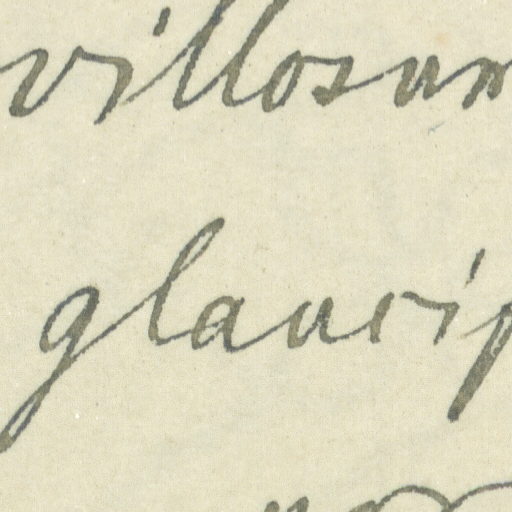 villosum
glaucip